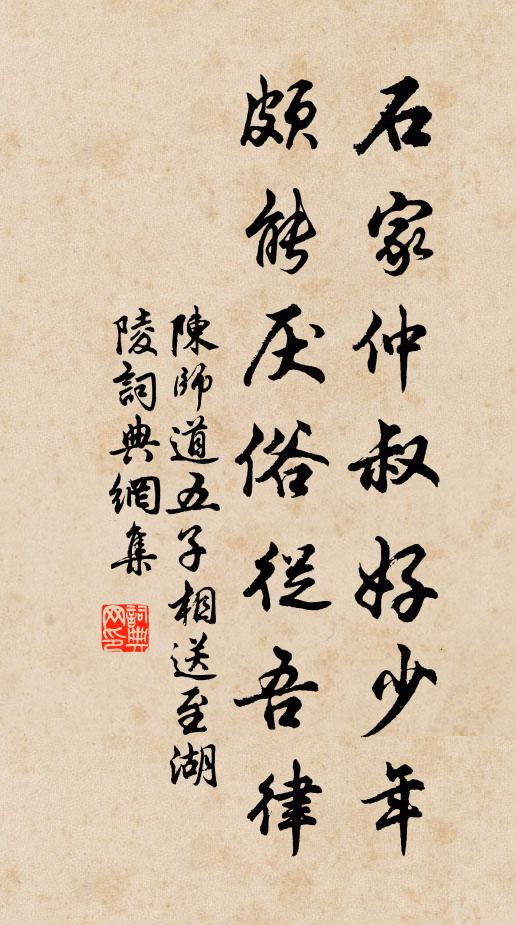 石家仲叔好少年
頗能厌俗從吾律
陳師道五子相送至湖
陵詞典網集
詞典網印